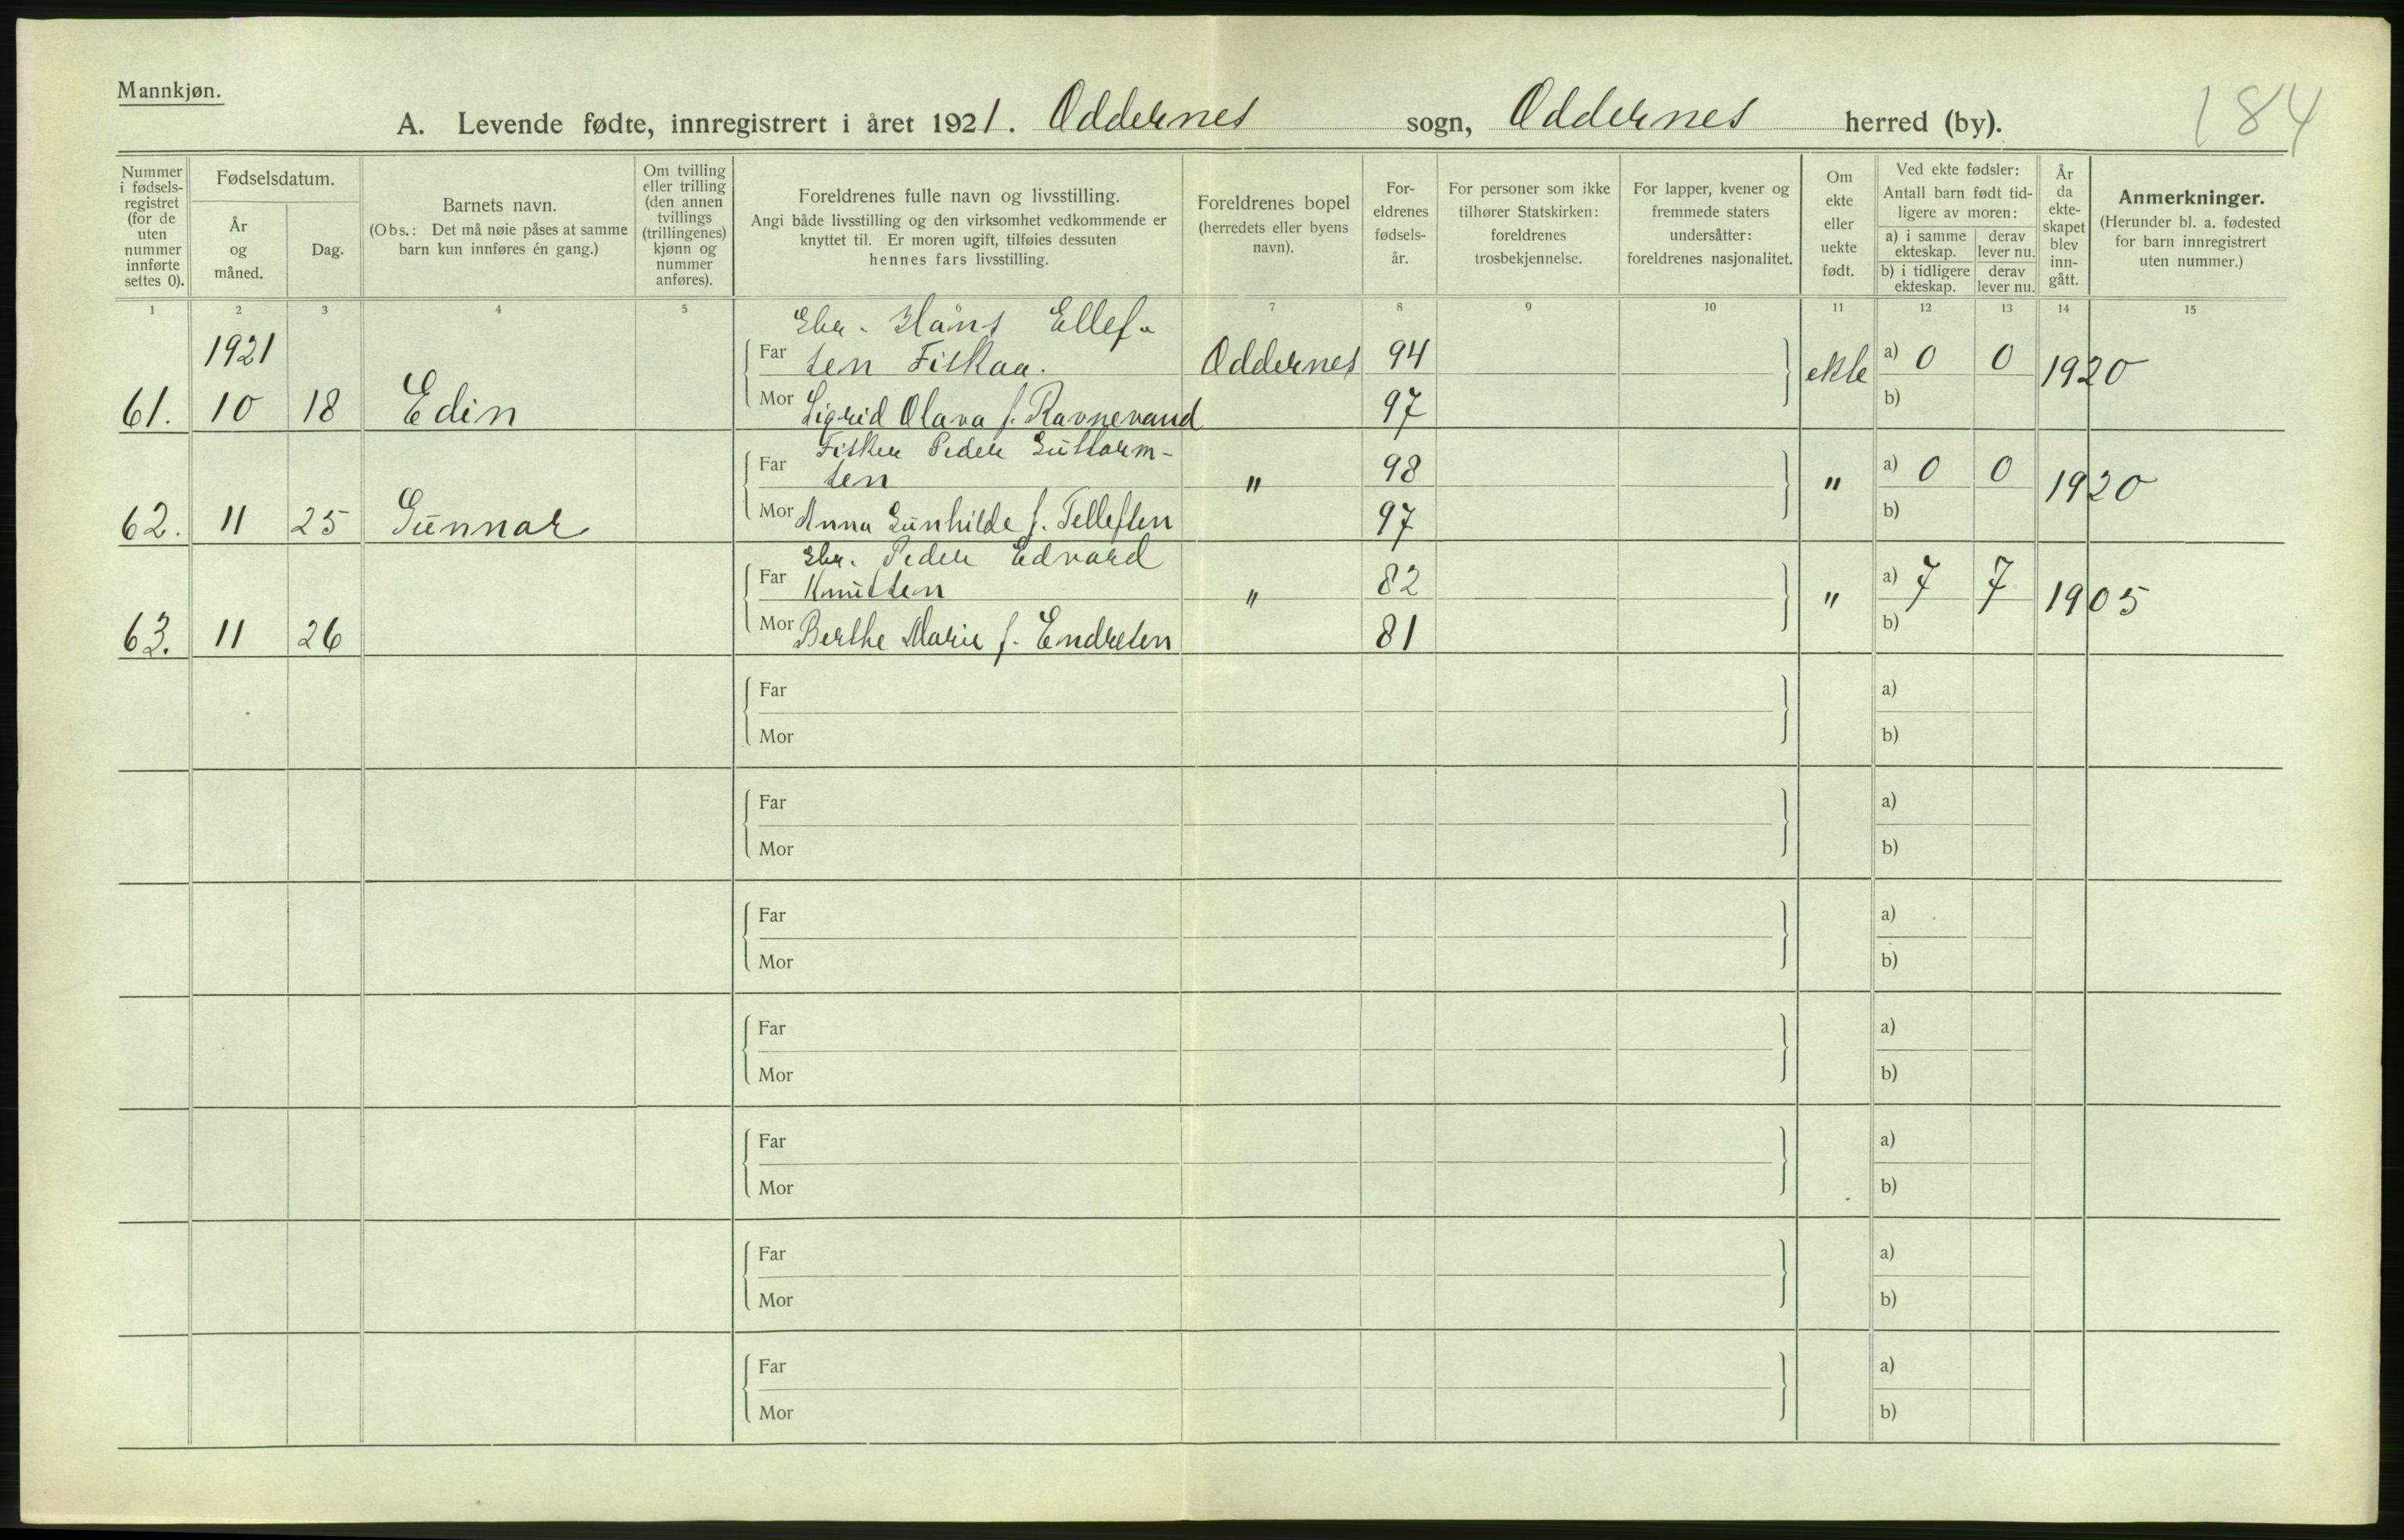 Mannkjøn.
184
A. Levende fødte, innregistrert i året 1921. Oddernes sogn, Oddernes herred (by).
Nummer i fødselsregistret (for de uten nummer innførte settes 0).
Fødselsdatum.
År og måned.
Dag.
Barnets navn.
(Obs.: Det må nøie påses at samme barn kun innføres én gang.)
Om tvilling eller trilling (den annen tvillings (trillingenes) kjønn og nummer anføres).
Foreldrenes fulle navn og livsstilling.
Angi både livsstilling og den virksomhet vedkommende er knyttet til. Er moren ugift, tilføies dessuten hennes fars livsstilling.
Foreldrenes bopel (herredets eller byens navn).
Foreldrenes fødselsår.
For personer som ikke tilhører Statskirken: foreldrenes trosbekjennelse.
For lapper, kvener og fremmede staters undersåtter: foreldrenes nasjonalitet.
Om ekte eller uekte født.
Ved ekte fødsler: Antall barn født tidligere av moren:
a) i samme ekteskap. derav lever nu.
b) i tidligere ekteskap. derav lever nu.
År da ekteskapet blev inngått.
Anmerkninger.
(Herunder bl. a. fødested for barn innregistrert uten nummer.)
1 2 3 4 5 7 8 9 10 11 12 13 14 15
1921
Ebr. Hans Ellef-
Far sen Fiskaa. Oddernes 94 ekte a) 0 0 1920
61. 10 18 Edin Mor Sigrid Olava f. Ravnevand 97 b)
Fisker Peder Guttorm-
Far sen " 98 " a) 0 0 1920
62. 11 25 Gunnar Mor Anna Gunhilde f. Tellefsen 97 b)
Ebr. Peder Edvard
Far Knutsen " 82 " a) 7 7 1905
63. 11 26 Mor Berthe Marie f. Endresen 81 b)
Far a)
Mor b)
Far a)
Mor b)
Far a)
Mor b)
Far a)
Mor b)
Far a)
Mor b)
Far a)
Mor b)
Far a)
Mor b)